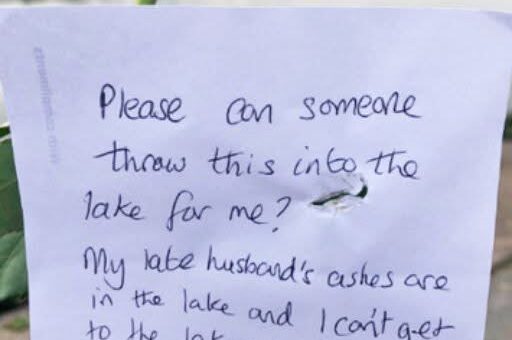 Please can someone
throw this into the
lake for me?
My late husband's ashes are
in the lake and I can't get
to the